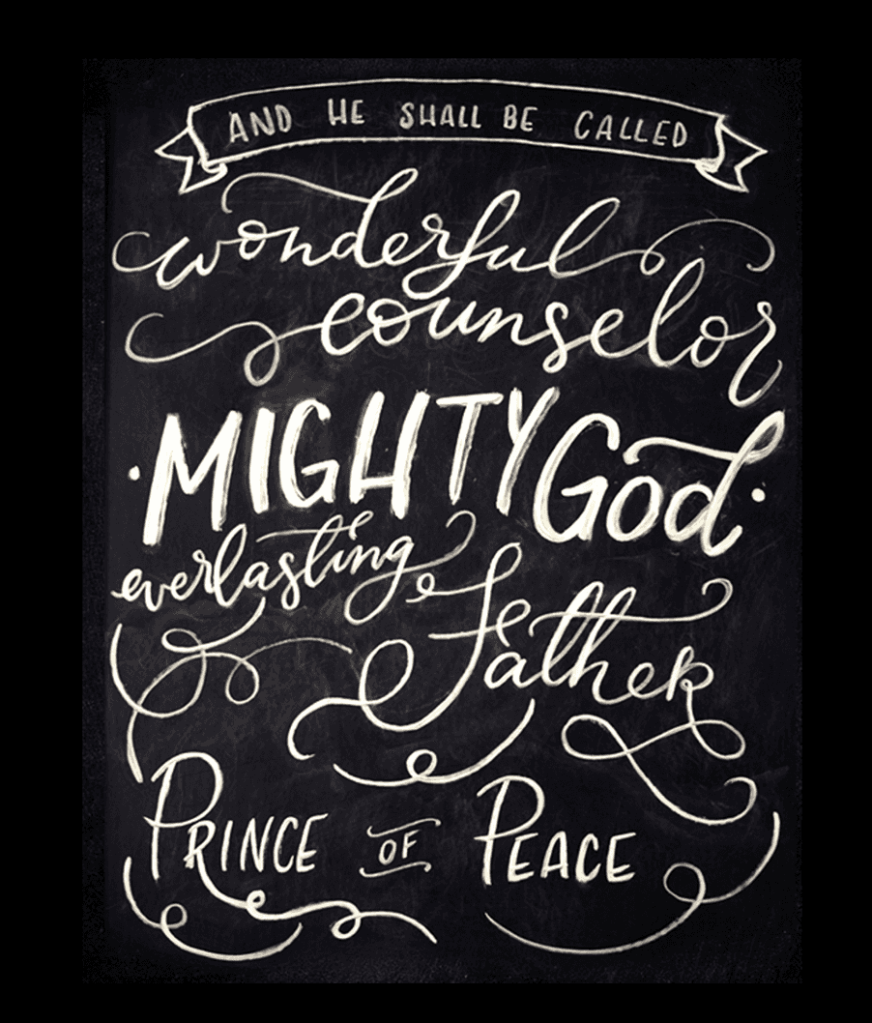 AND HE SHALL BE CALLED
wonderful
counselor
MIGHTY God
everlasting
Father
PRINCE OF PEACE